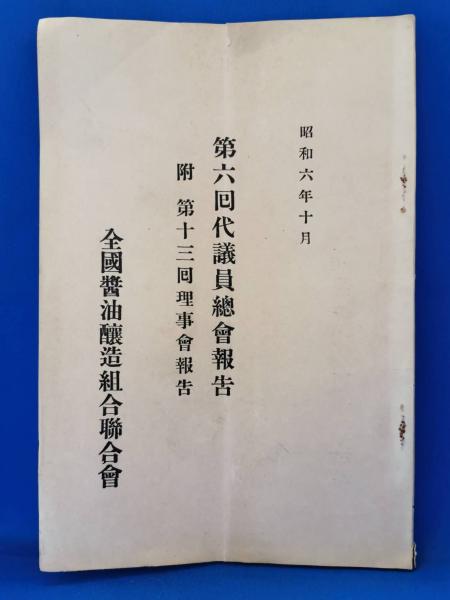 昭和六年十月
第六回代議員總會報告
附 第十三回理事會報告
全國醬油釀造組合聯合會